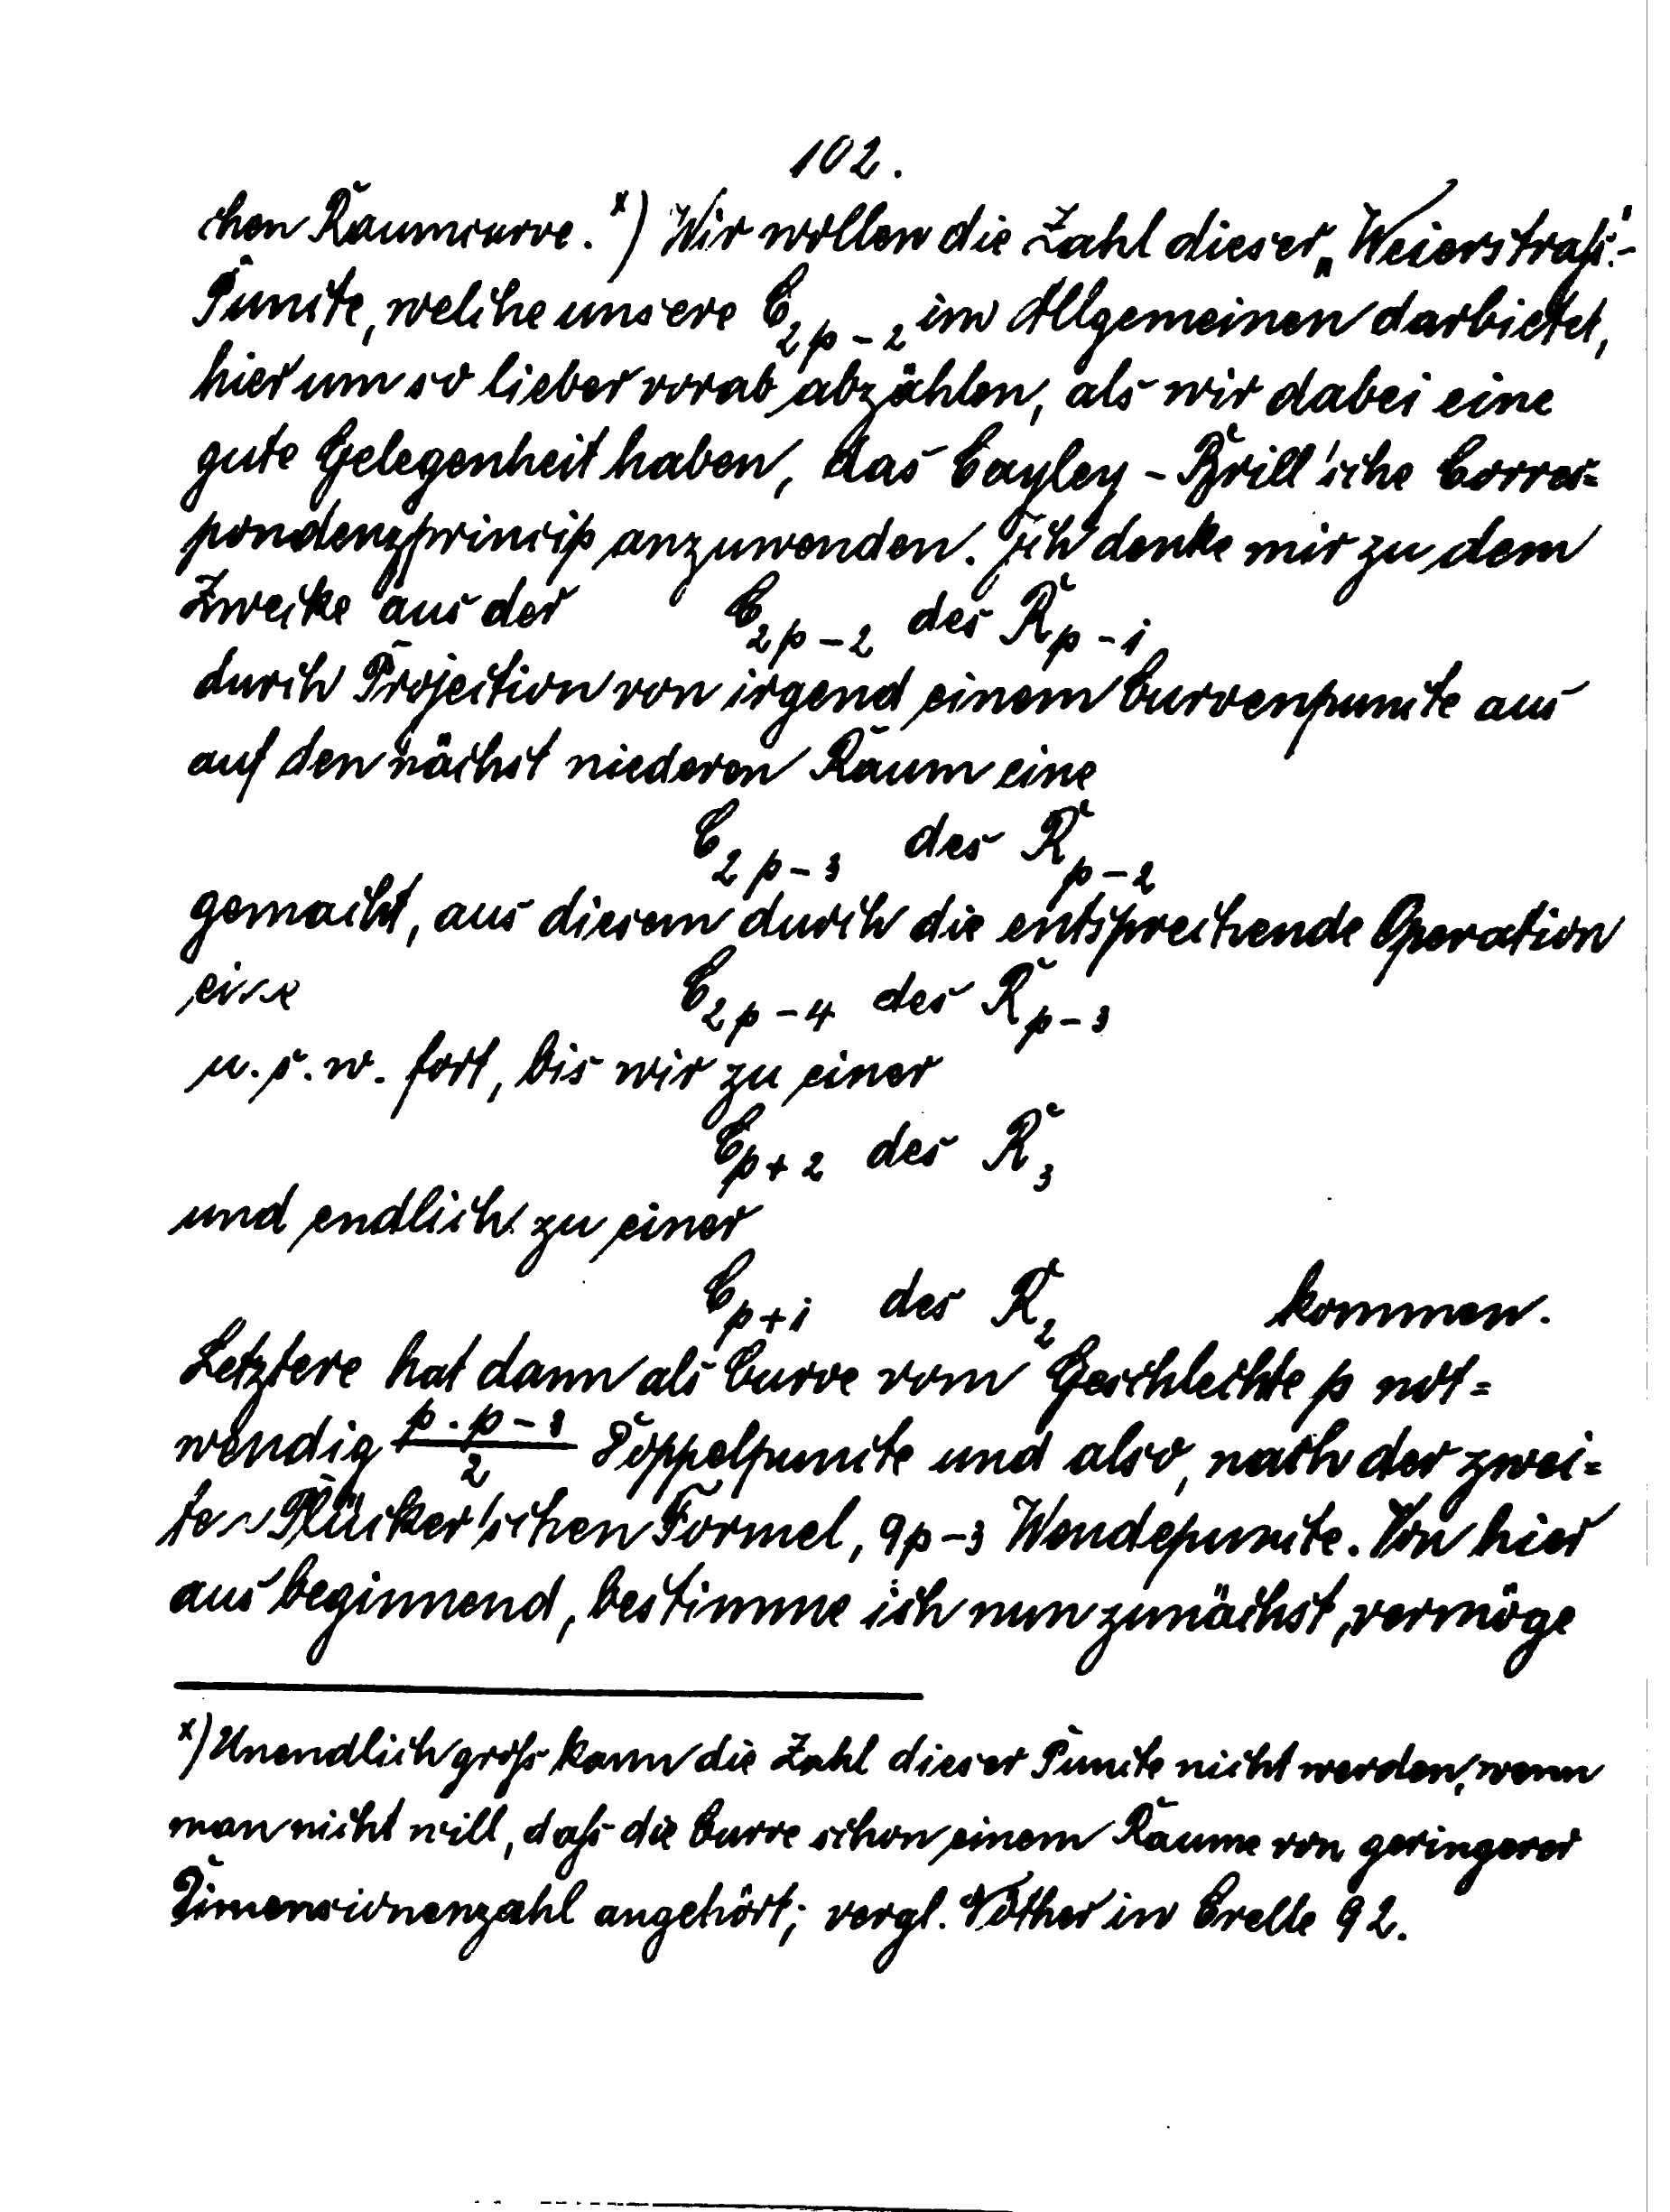 102.
chen Raumcurve. x) Wir wollen die Zahl dieser „Weierstraß'-
Puncte, welche unsere C_{2p-2} im Allgemeinen darbietet,
hier um so lieber vorab abzählen, als wir dabei eine
gute Gelegenheit haben, das Cayley-Brill'sche Corres=
pondenzprincip anzuwenden. Ich denke mir zu dem
Zwecke aus der C_{2p-2} des R_{p-1}
durch Projection von irgend einem Curvenpuncte aus
auf den nächst niederen Raum eine
C_{2p-3} des R_{p-2}
gemacht, aus diesem durch die entsprechende Operation
eine C_{2p-4} des R_{p-3}
u. s. w. fort, bis wir zu einer
C_{p+2} des R_3
und endlich zu einer
C_{p+1} des R_2 kommen.
Letztere hat dann als Curve vom Geschlechte p not=
wendig \frac{p . p-3}{2} Doppelpuncte und also, nach der zwei=
ten Plücker'schen Formel, 9p-3 Wendepuncte. Von hier
aus beginnend, bestimme ich nun zunächst, vermöge
x) Unendlich groß kann die Zahl dieser Puncte nicht werden, wenn
man nicht will, daß die Curve schon einem Raume von geringerer
Dimensionenzahl angehört; vergl. Nöther in Crelle 92.